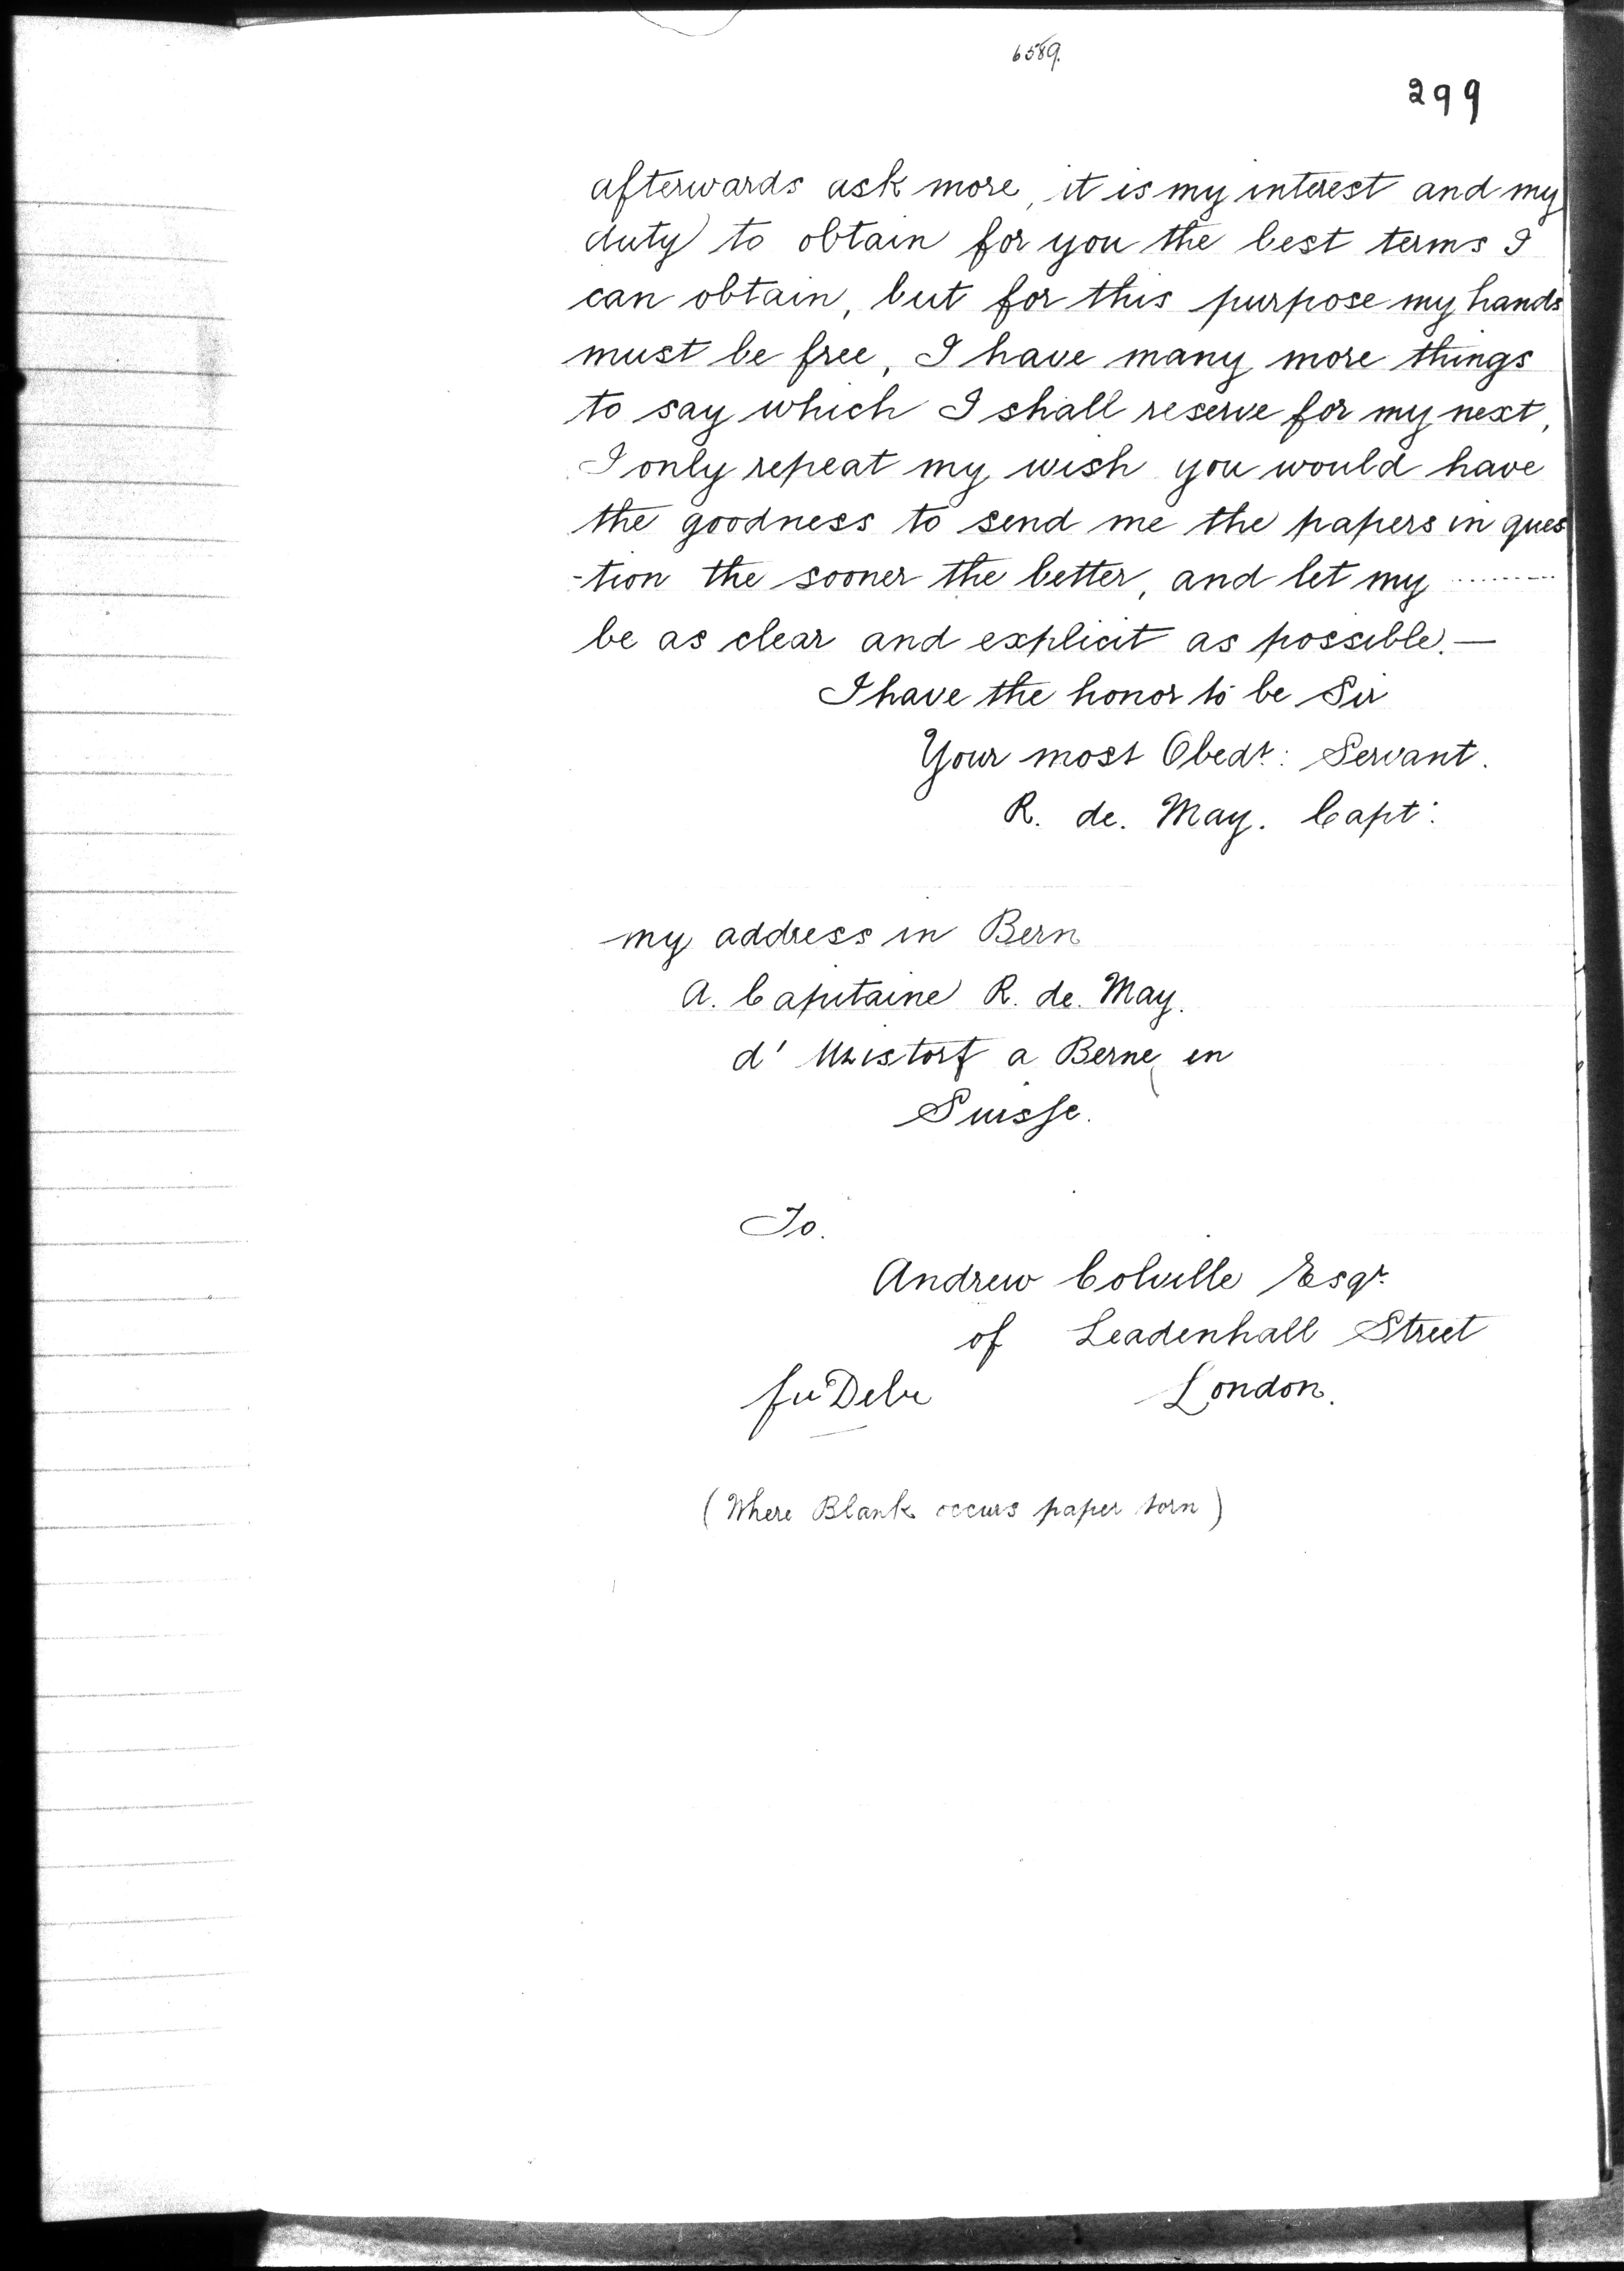 6589.
299
afterwards ask more, it is my interest and my
duty to obtain for you the best terms I
can obtain, but for this purpose my hands
must be free, I have many more things
to say which I shall reserve for my next,
I only repeat my wish you would have
the goodness to send me the papers in ques
-tion the sooner the better, and let my ..........
be as clear and explicit as possible.—
I have the honor to be Sir
Your most Obedt: Servant.
R. de. May. Capt:
my address in Bern
A. Capitaine R. de. May.
d' Uzistorf a Berne, en
Suisse.
To.
Andrew Colville Esqr.
of Leadenhall Street
London.
(Where Blank occurs paper torn)